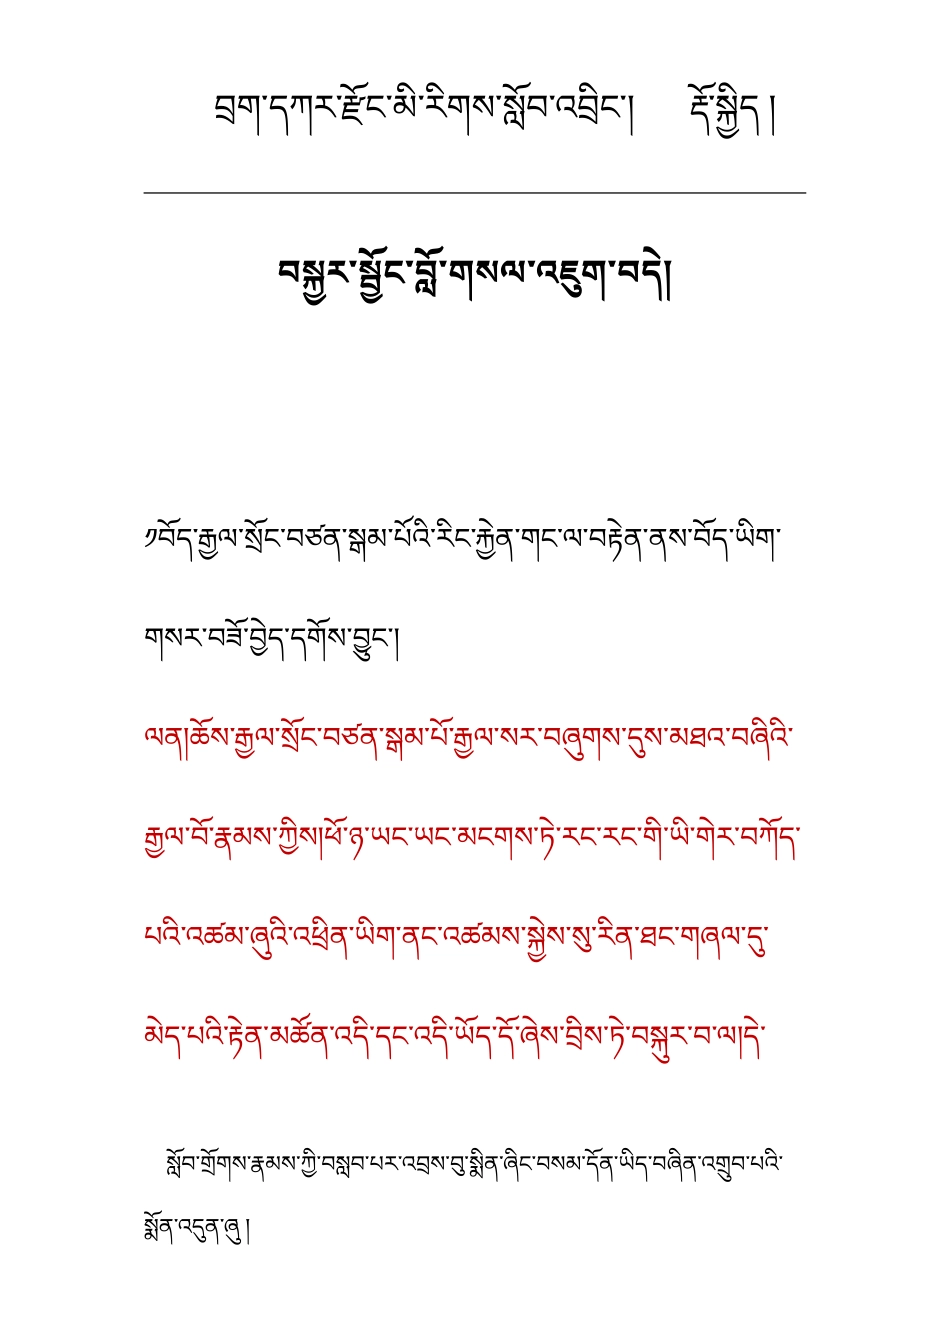 བྲག་དཀར་རྫོང་མི་རིགས་སློབ་འབྲིང་། རྡོ་སྐྱིད །
བསྐྱར་སྦྱོང་བློ་གསལ་འཇུག་བདེ།
༡བོད་རྒྱལ་སྲོང་བཙན་སྒམ་པོའི་རིང་རྐྱེན་གང་ལ་བརྟེན་ནས་བོད་ཡིག་
གསར་བཟོ་བྱེད་དགོས་བྱུང་།
ལན།ཆོས་རྒྱལ་སྲོང་བཙན་སྒམ་པོ་རྒྱལ་སར་བཞུགས་དུས་མཐའ་བཞིའི་
རྒྱལ་བོ་རྣམས་ཀྱིས།ཕོ་ཉ་ཡང་ཡང་མངགས་ཏེ་རང་རང་གི་ཡི་གེར་བཀོད་
པའི་འཚམ་ཞུའི་འཕྲིན་ཡིག་ནང་འཚམས་སྐྱེས་སུ་རིན་ཐང་གཞལ་དུ་
མེད་པའི་རྟེན་མཚོན་འདི་དང་འདི་ཡོད་དོ་ཞེས་བྲིས་ཏེ་བསྐུར་བ་ལ།དེ་
སློབ་གྲོགས་རྣམས་ཀྱི་བསླབ་པར་འབྲས་བུ་སྨིན་ཞིང་བསམ་དོན་ཡིད་བཞིན་འགྲུབ་པའི་
སྨོན་འདུན་ཞུ །